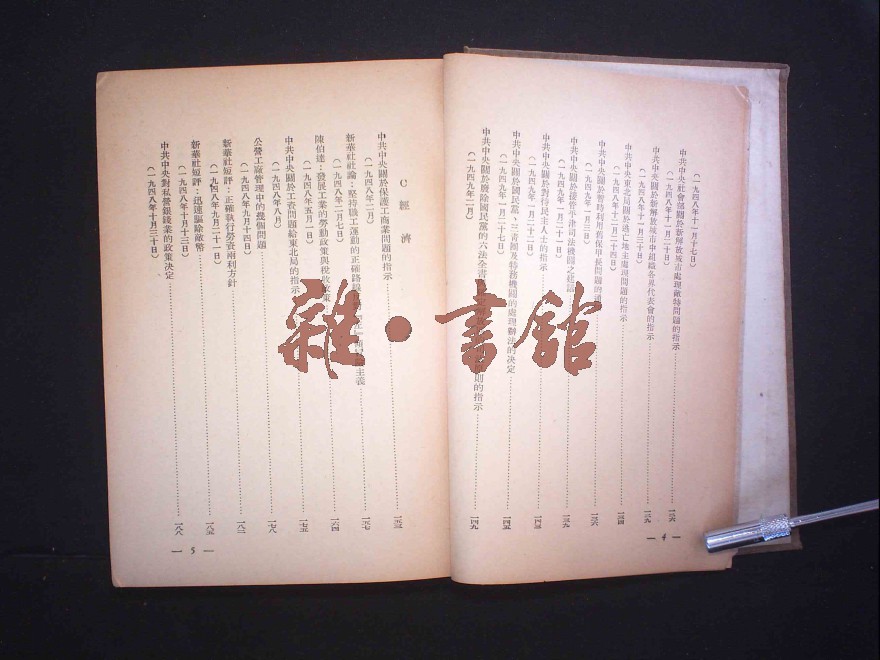 （一九四八年十一月十七日）
中共中央社會部關於新解放城市處理敵特問題的指示……一二六
（一九四八年十一月二十日）
中共中央關於新解放城市中組織各界代表會的指示……一二九
（一九四八年十一月三十日）
中共中央東北局關於逃亡地主處理問題的指示……一三四
（一九四八年十二月二十四日）
中共中央關於暫時利用舊保甲長問題的……一三六
（一九四九年一月三日）
中共中央關於接管平津司法機關之建議……一三九
（一九四九年一月二十一日）
中共中央關於對待民主人士的指示……一四三
（一九四九年一月二十二日）
中共中央關於國民黨、三青團及特務機關的處理辦法的決定……一四五
（一九四九年一月）
中共中央關於廢除國民黨的六法全書……則的指示……一四九
（一九四九年二月）
— 4 —
C 經濟
中共中央關於保護工商業問題的指示……一五三
（一九四八年二月）
新華社社論：堅持職工運動的正確路線……主義……一五七
（一九四八年二月七日）
陳伯達：發展工業的勞動政策與稅收政策……一六四
（一九四八年五月一日）
中共中央關於工資問題給東北局的指示……一七五
（一九四八年八月）
公營工廠管理中的幾個問題……一七八
（一九四八年九月十四日）
新華社短評：正確執行勞資兩利方針……一八二
（一九四八年九月二十一日）
新華社短評：迅速驅除敵幣……一八五
（一九四八年十月十三日）
中共中央對私營銀錢業的政策決定……一八六
（一九四八年十月三十日）
— 5 —
雜·書館